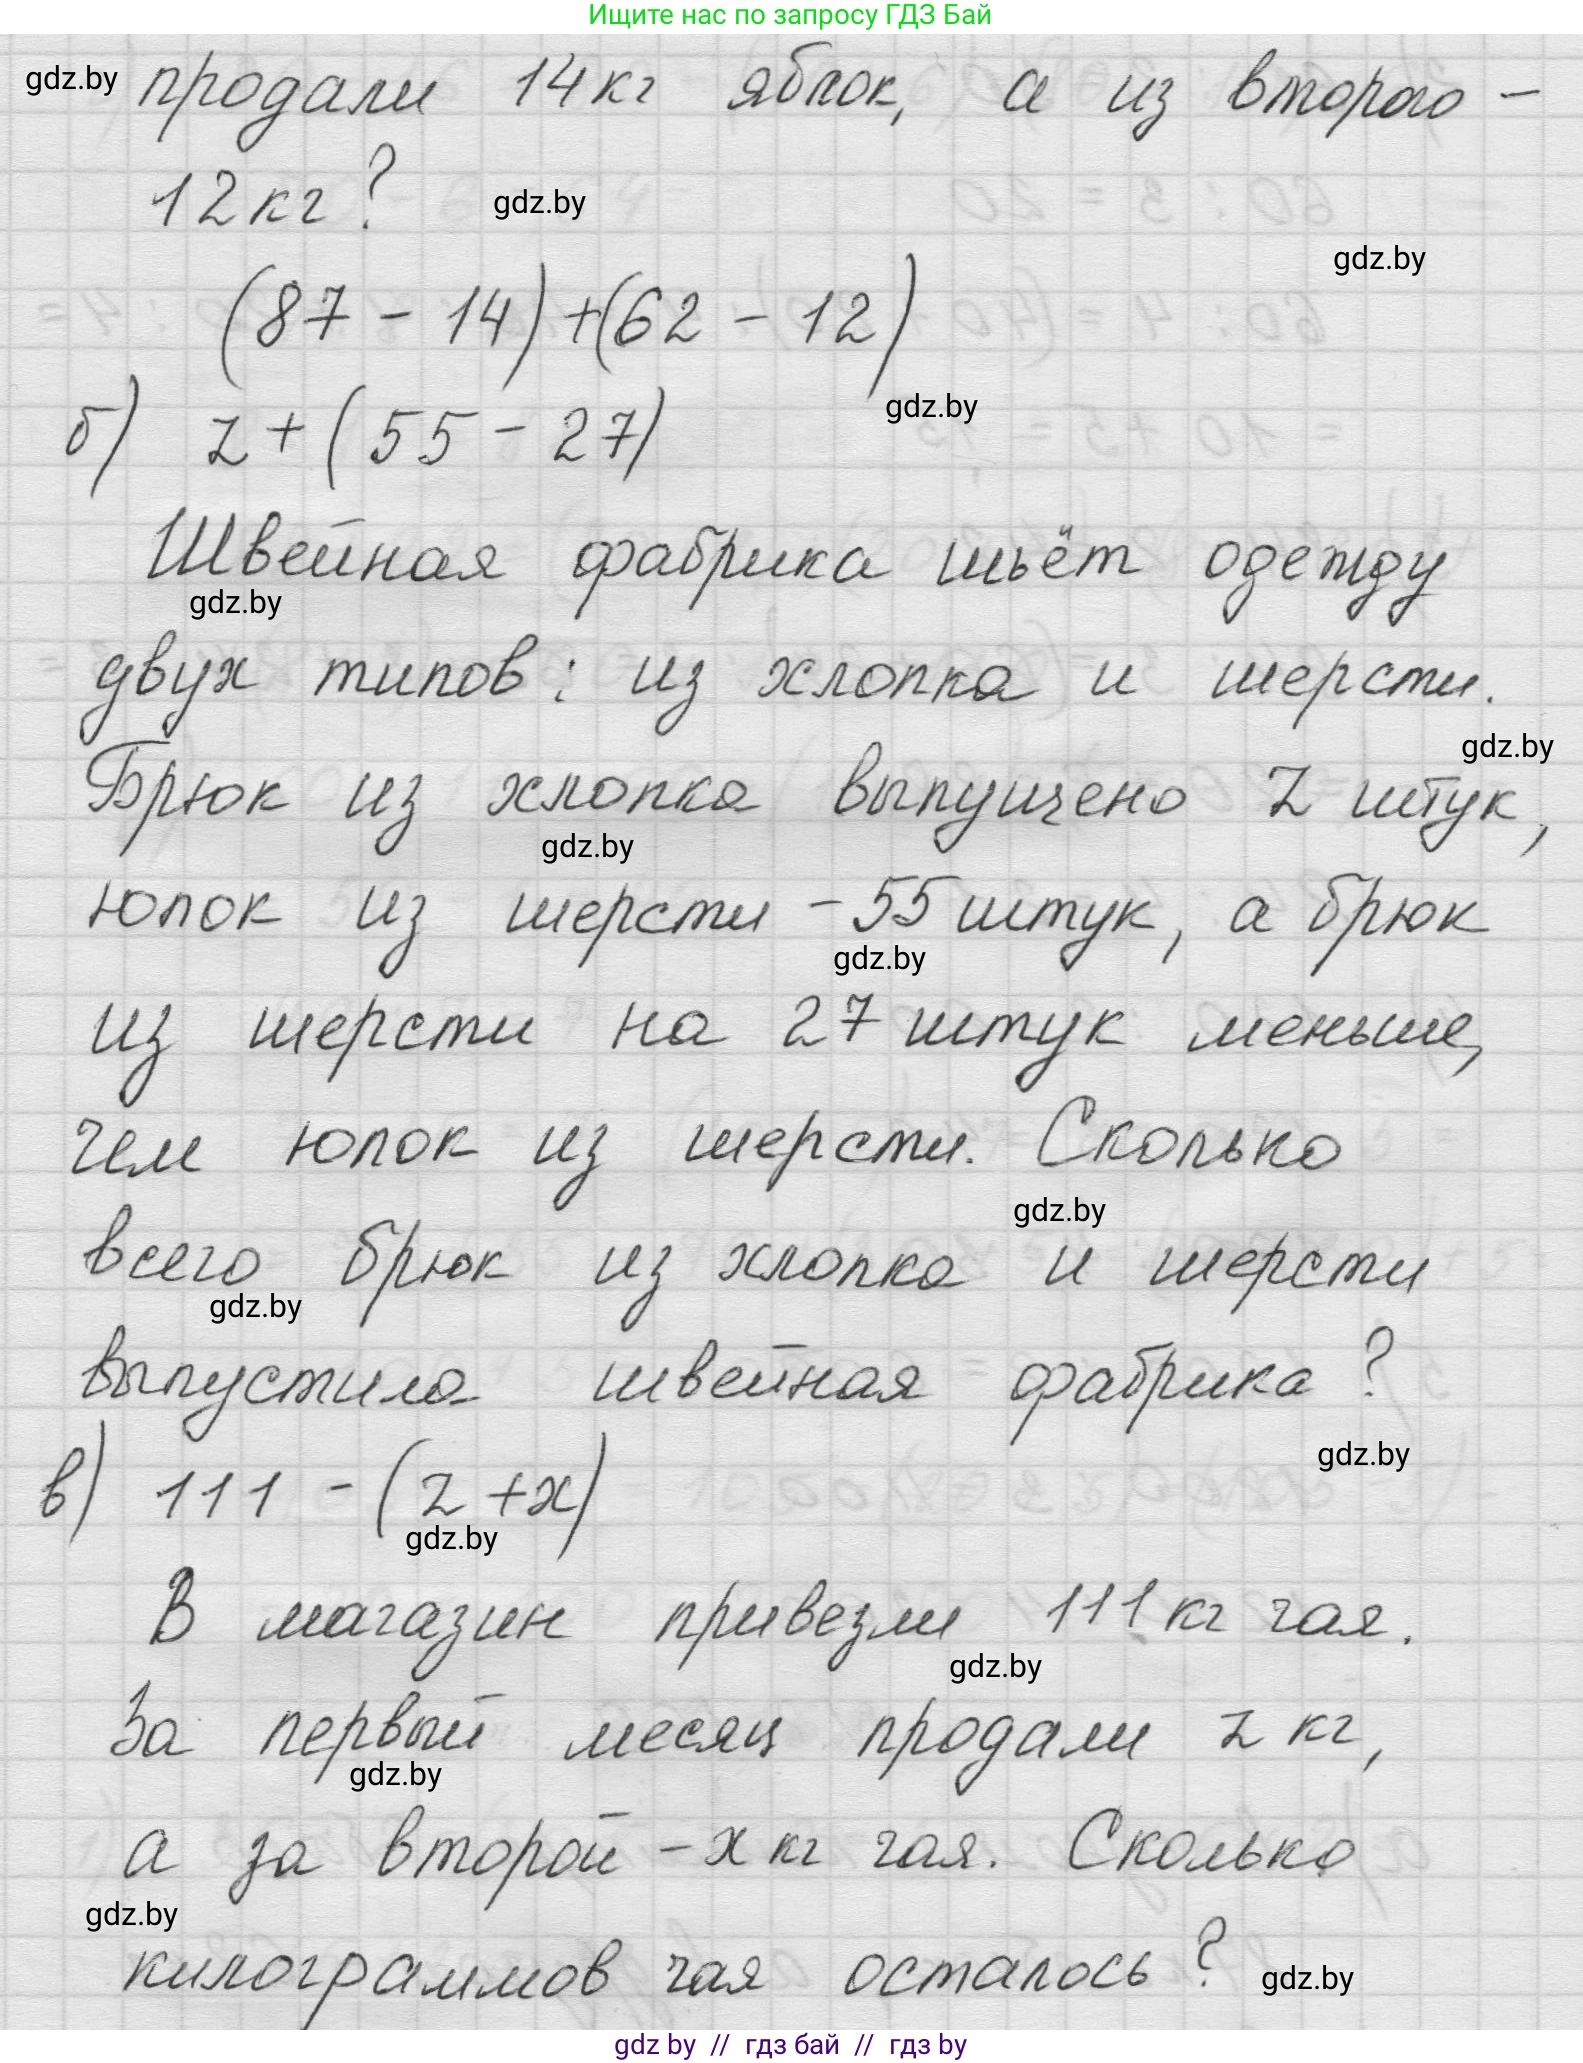 Ищите нас по запросу ГДЗ Бай
gdz.by продали 14 кг яблок, а из второго –
12 кг? gdz.by
gdz.by
(87 - 14) + (62 - 12)
gdz.by
б) z + (55 - 27)
Швейная фабрика шьёт одежду
gdz.by
двух типов: из хлопка и шерсти.
gdz.by
Брюк из хлопка выпущено z штук,
gdz.by
юпок из шерсти - 55 штук, а брюк
gdz.by
из шерсти на 27 штук меньше,
чем юпок из шерсти. Сколько
gdz.by
всего брюк из хлопка и шерсти
gdz.by
выпустила швейная фабрика?
gdz.by
в) 111 - (z + x)
gdz.by
В магазин привезли 111 кг чая.
gdz.by
За первый месяц продали z кг,
gdz.by
а за второй - x кг чая. Сколько
gdz.by
килограммов чая осталось? gdz.by
gdz by // гдз бай // gdz by